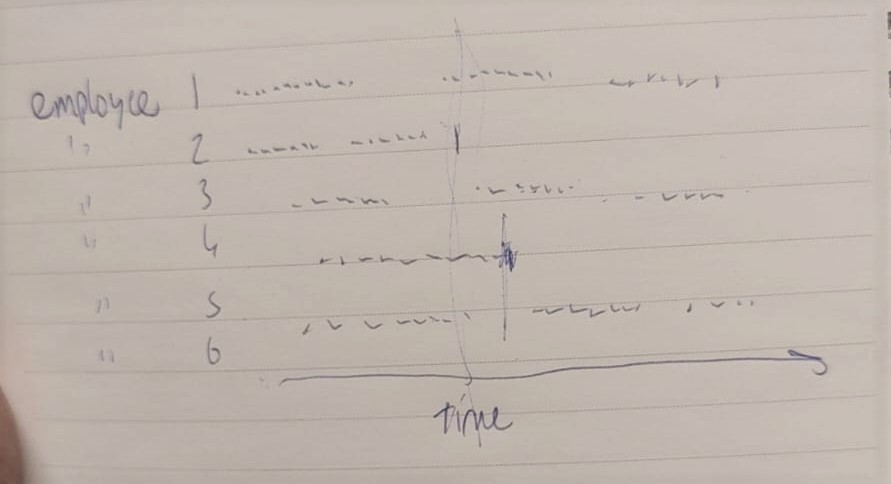 employee 1
" 2
" 3
" 4
" 5
" 6
time